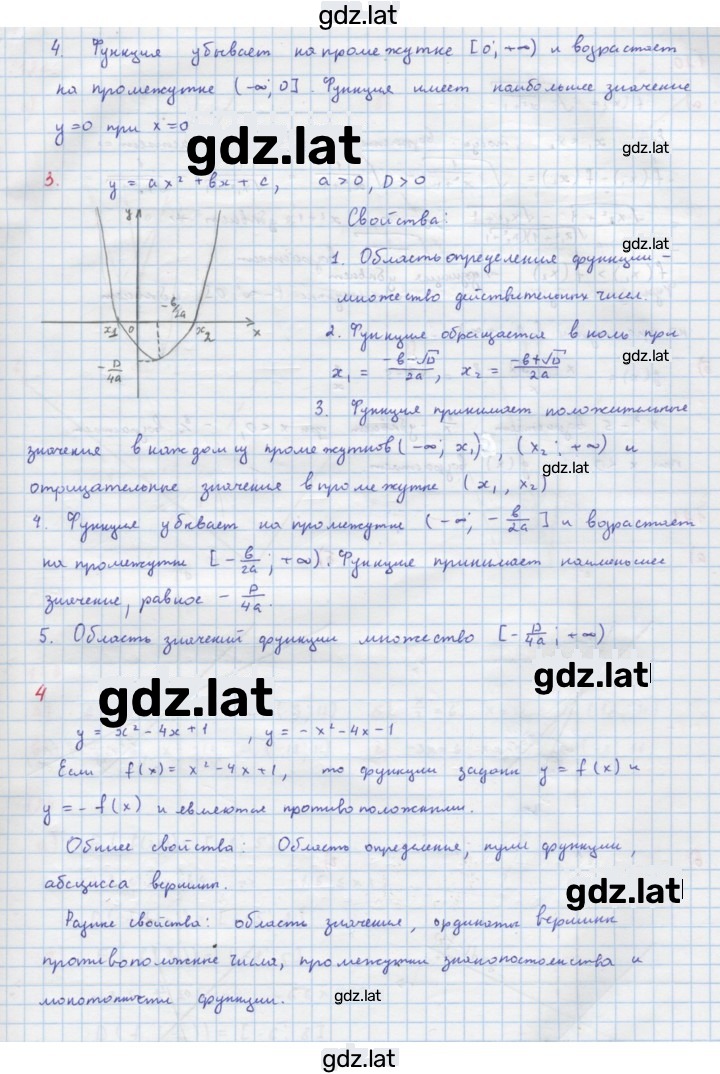 gdz.lat
4. Функция убывает на промежутке [0; +∞) и возрастает
на промежутке (-∞; 0]. Функция имеет наибольшее значение
y=0 при x=0
gdz.lat
gdz.lat
3. y = ax² + bx + c, a > 0, D > 0
y
Свойства:
gdz.lat
1. Область определения функции -
множество действительных чисел.
-b/2a
x₁ 0 x₂ x
2. Функция обращается в ноль при
gdz.lat
-D/4a
x₁ = (-b-√D)/2a, x₂ = (-b+√D)/2a
3. Функция принимает положительные
значение в каждом из промежутков (-∞; x₁), (x₂; +∞) и
gdz.lat
отрицательные значение в промежутке (x₁, x₂)
4. Функция убывает на промежутке (-∞; -b/2a] и возрастает
на промежутке [-b/2a; +∞). Функция принимает наименьшее
значение, равное -D/4a.
5. Область значений функции множество [-D/4a; +∞)
gdz.lat
4
gdz.lat
y = x² - 4x + 1, y = -x² - 4x - 1
Если f(x) = x² - 4x + 1, то функции задани y = f(x) и
y = -f(x) и евляются противоположними.
Общие свойства: Область определения, нули функции,
абсцисса вершины.
gdz.lat
Разные свойства: область значения, ординаты вершины
противоположные числа, промежутки знакопостоенства и
монотонности функции.
gdz.lat
gdz.lat